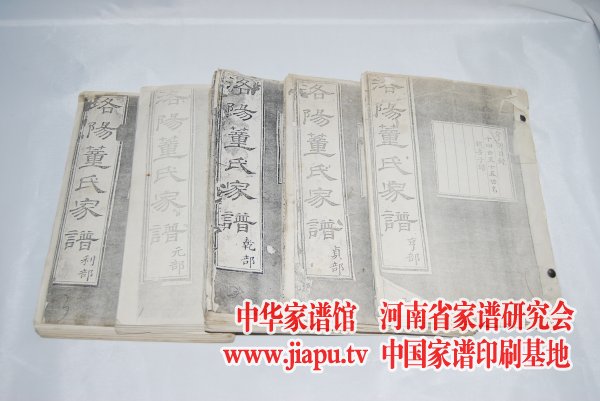 洛陽董氏家譜 利部
洛陽董氏家譜 元部
洛陽董氏家譜 乾部
洛陽董氏家譜 貞部
洛陽董氏家譜 亨部
中华家谱馆 河南省家谱研究会
www.jiapu.tv 中国家谱印刷基地